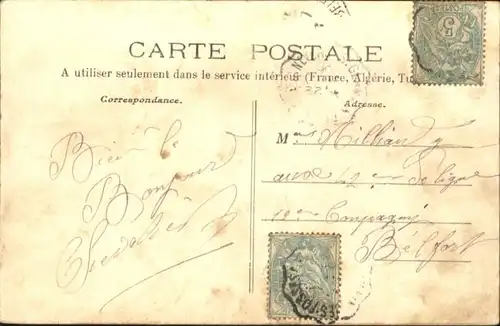 CARTE POSTALE
A utiliser seulement dans le service intérieur (France, Algérie, Tu
Correspondance.
Adresse.
Bien le
Bonjour
Chevalier
M Milliand
au 42 de ligne
Compagnie
Bélfort
5